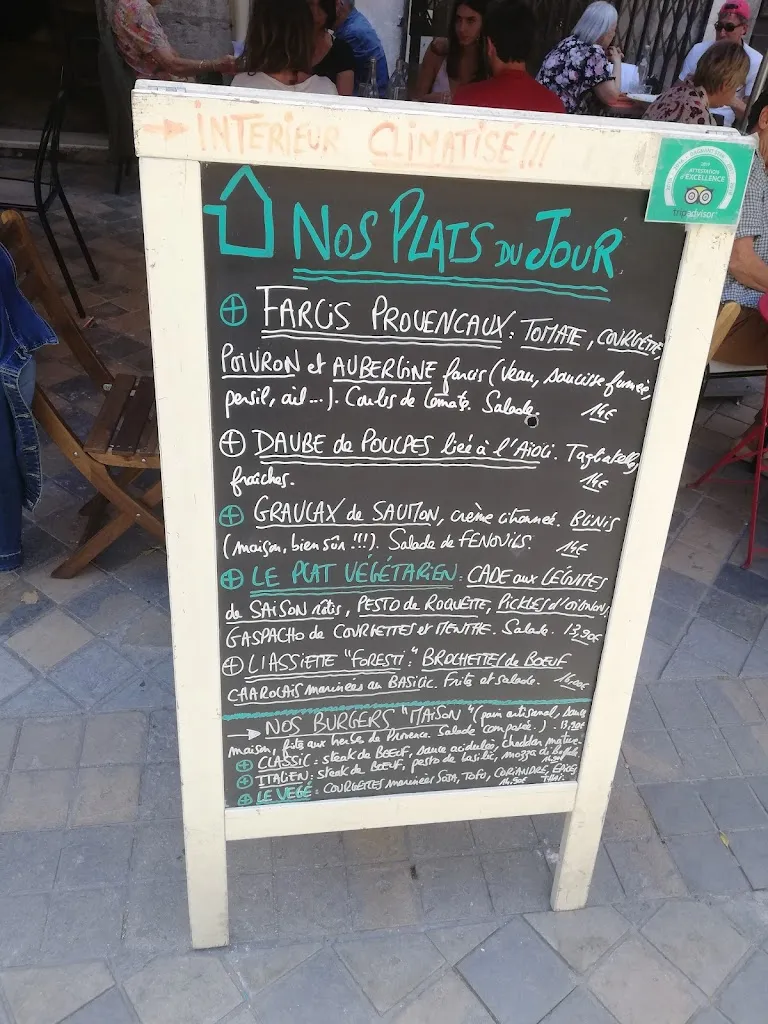 → INTERIEUR CLIMATISÉ !!!
ATTESTATION
d'EXCELLENCE
tripadvisor
NOS PLATS DU JOUR
⊕ FARCIS PROVENCAUX : TOMATE, COURGETTE,
POIVRON et AUBERGINE farcis (Veau, saucisse fumée,
persil, ail...). Coulis de tomate. Salade. 14€
⊕ DAUBE de POULPES liée à l'AÏOLI. Tagliatelles
fraîches. 14€
⊕ GRAVLAX de SAUMON, crème citronnée. BLINIS
(maison, bien sûr !!!). Salade de FENOUILS. 14€
⊕ LE PLAT VÉGÉTARIEN : CADE aux LÉGUMES
de SAISON rôtis, PESTO de ROQUETTE, PICKLES d'OIGNONS,
GASPACHO de COURGETTES et MENTHE. Salade. 13,90€
⊕ L'ASSIETTE "FORESTI" : BROCHETTES de BOEUF
CHAROLAIS marinées au BASILIC. Frites et salade. 16,00€
→ NOS BURGERS "MAISON" (pain artisanal, sauce
maison, frites aux herbes de Provence. Salade composée.). 13,90€
⊕ CLASSIC : steak de BOEUF, sauce acidulée, cheddar mature
⊕ ITALIEN : steak de BOEUF, pesto de basilic, mozza di bufala 14,90€
⊕ LE VÉGÉ : COURGETTES marinées SOJA, TOFU, CORIANDRE, ÉPICES
THAÏ. 14,50€